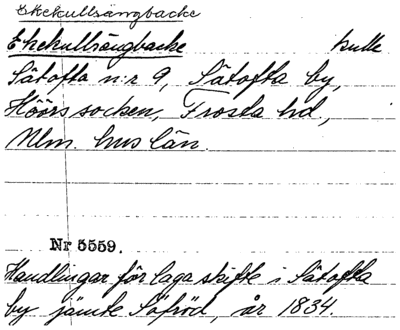 Ekekullsängbacke
Ekekullsängbacke kulle
Sätofta n:r 9, Sätofta by,
Höörs socken, Frosta hd,
Mlm. hus län.
Nr 5559.
Handlingar för laga skifte i Sätofta
by jämte Söfröd, år 1834.